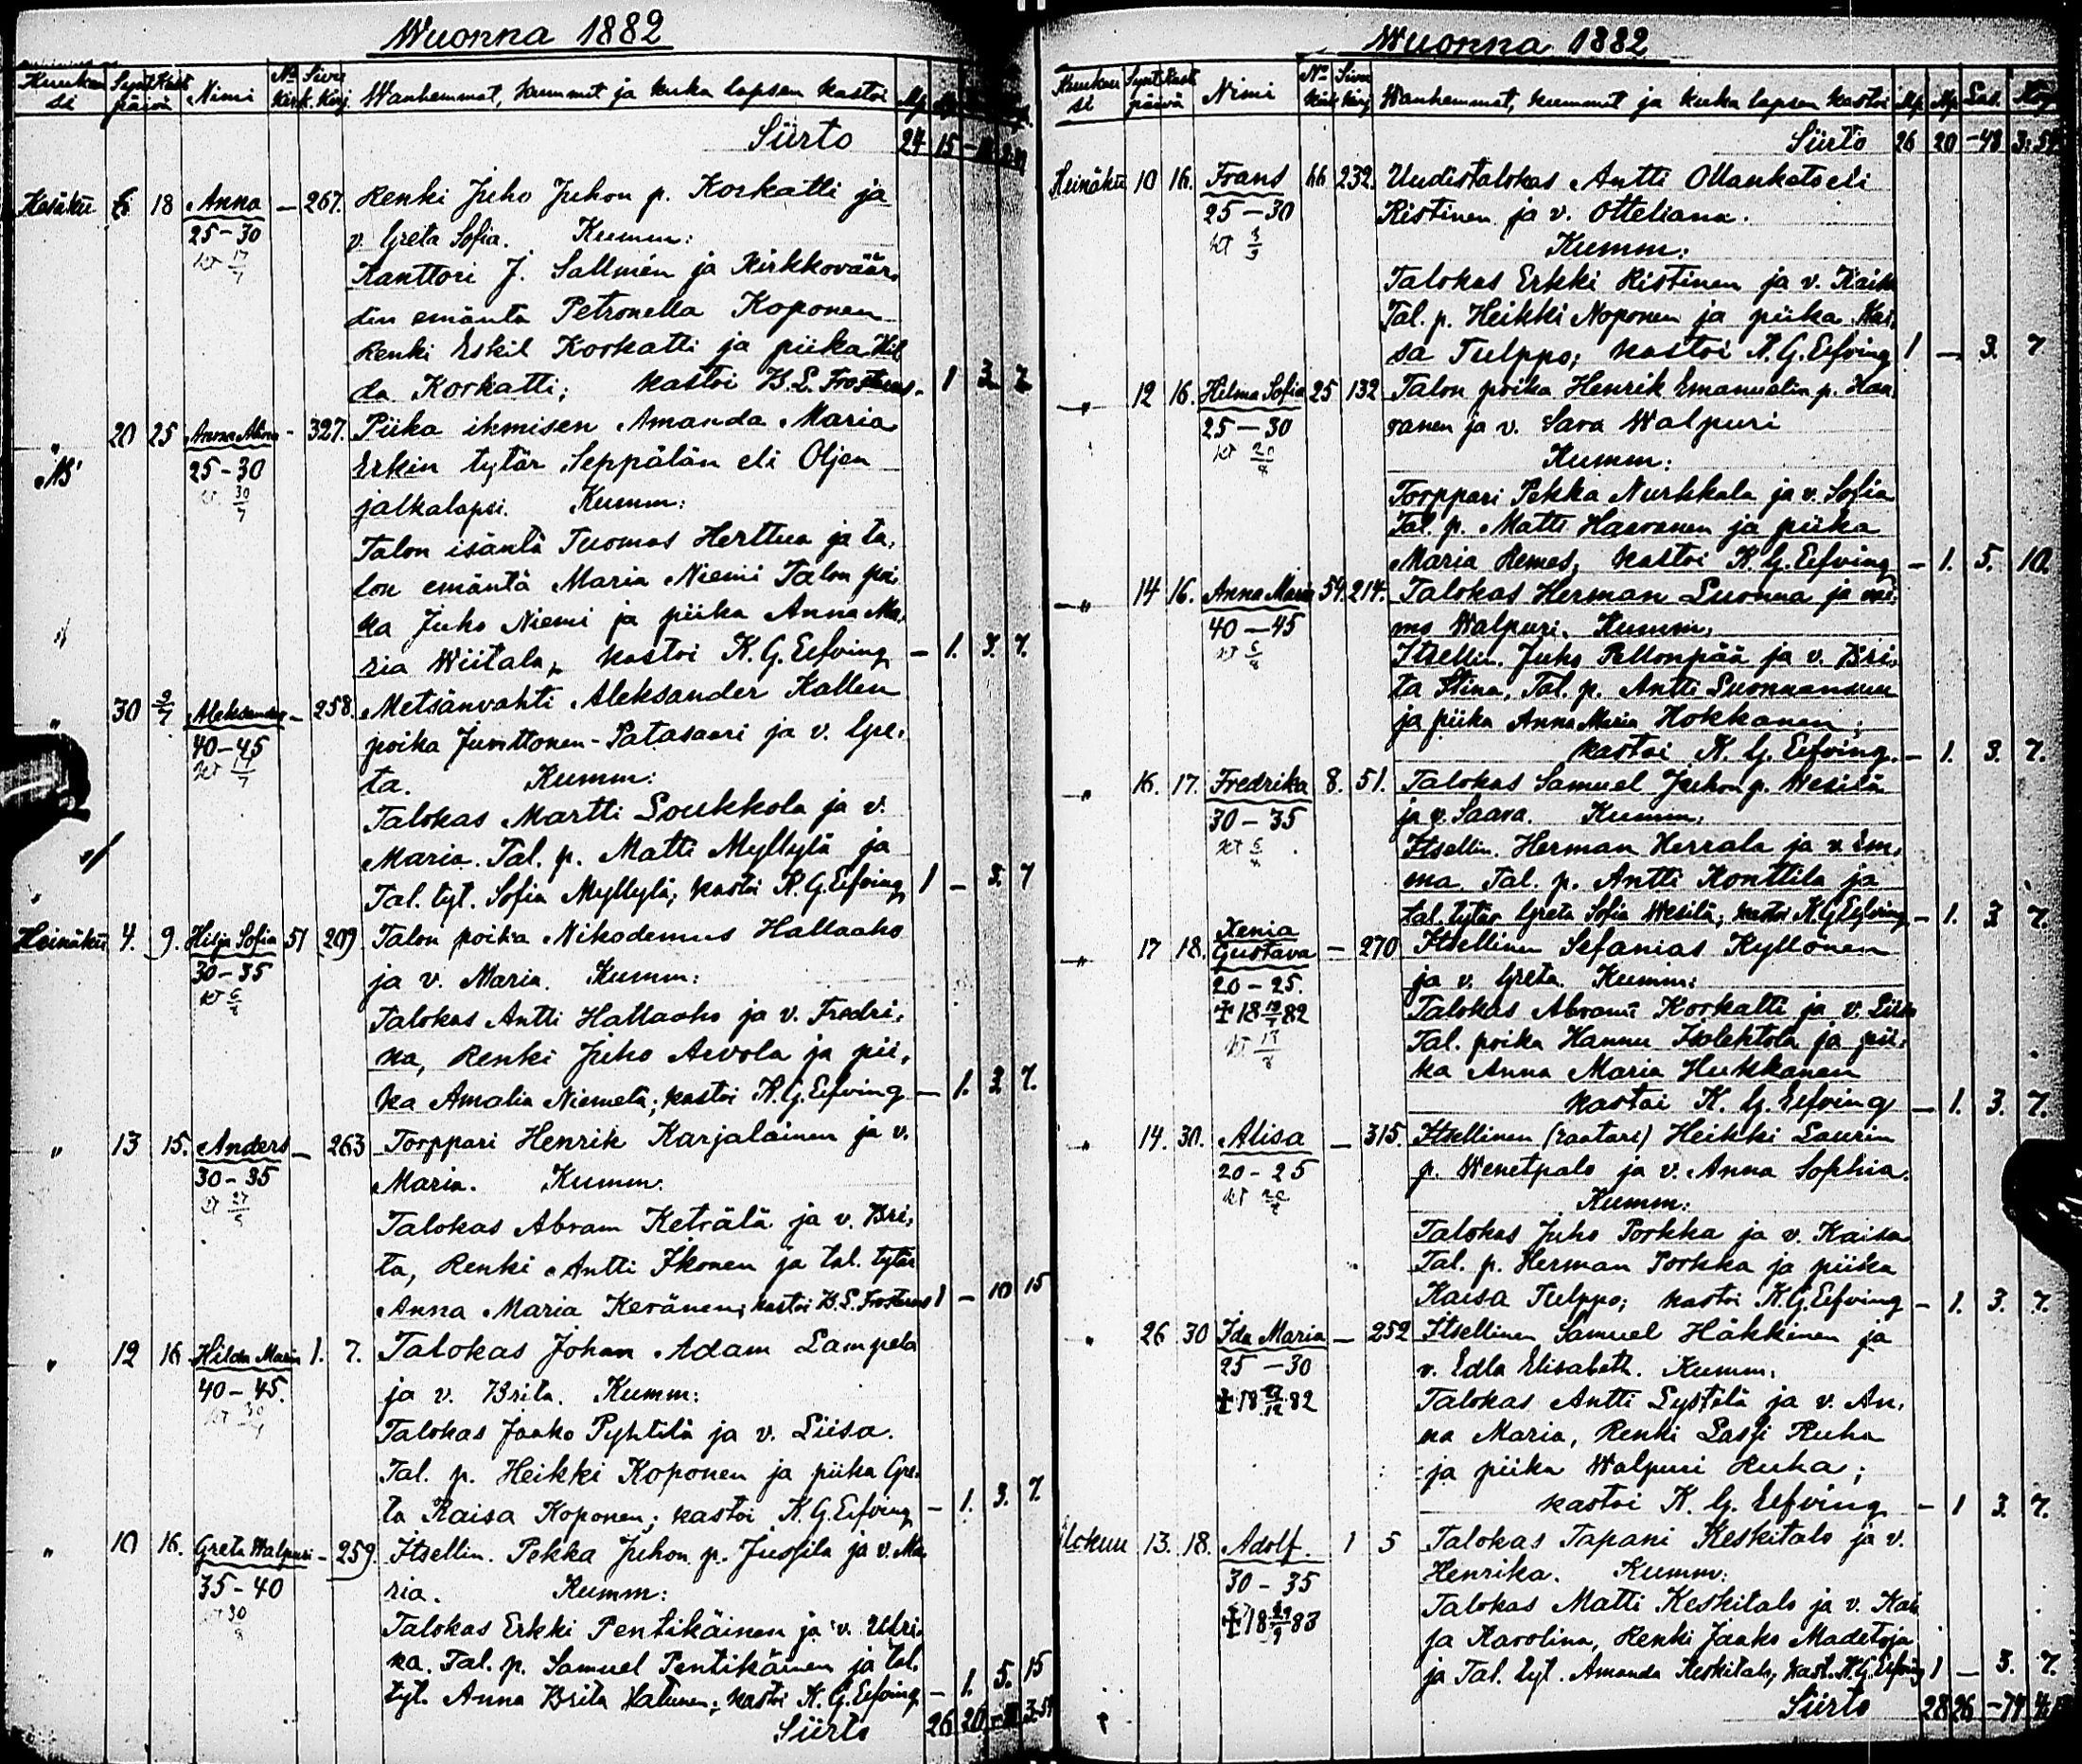 Wuonna 1882
Kuukausi Synt. Kast. päivä Nimi No Kirk. Sivu Kirj. Wanhemmat, kummit ja kuka lapsen kastoi Mp. Np.
Siirto 24 15
Kesäku 6 18 Anna — 267. Renki Juho Juhon p. Korkatti ja
25-30 v. Greta Sofia. Kumm:
17/7 Kanttori J. Sallmén ja Kirkkoväär,
den emäntä Petronella Koponen
Renki Eskil Korkatti ja piika Hil
da Korkatti; kastoi B.L. Frosterus - 1 3 7
" 20 25 Anna Alina - 327. Piika ihmisen Amanda Maria
25-30 Erkin tytär Seppälän eli Oljen
30/7 jalkalapsi. Kumm:
Talon isäntä Tuomas Herttua ja ta,
lon emäntä Maria Niemi Talon poi,
ka Juho Niemi ja piika Anna Ma,
ria Wiitala, kastoi K. G. Eefving — 1. 3. 7.
" 30 2/7 Aleksander — 258. Metsänvahti Aleksander Kallen
40-45 poika Junttonen-Patasaari ja v. Gre,
17/7 ta. Kumm:
Talokas Martti Soukkola ja v.
Maria. Tal. p. Matti Myllylä ja
Tal. tyt. Sofia Myllylä; kastoi K. G. Eefving 1 — 3. 7
Heinäku 4. 9. Hilja Sofia 51 209 Talon poika Nikodemus Hallaaho
30-35 ja v. Maria. Kumm:
6/8 Talokas Antti Hallaaho ja v. Fredri,
ka, Renki Juho Arvola ja pii,
ka Amalia Niemelä; kastoi K. G. Eefving — 1. 3 7.
" 13 15. Anders — 263 Torppari Henrik Karjalainen ja v.
30-35 Maria. Kumm.
Talokas Abram Keträlä ja v. Bri,
ta, Renki Antti Ikonen ja tal. tytär
Anna Maria Keränen; kastoi B.L. Frosterus 1 — 10 15
" 12 16 Hilda Maria 1. 7. Talokas Johan Adam Lampela
40-45. ja v. Brita. Kumm:
Talokas Jaako Pyhtilä ja v. Liisa.
Tal. p. Heikki Koponen ja piika Gre,
ta Kaisa Koponen; kastoi K. G. Eefving — 1. 3. 7.
" 10 16. Greta Walpuri — 259. Itsellin. Pekka Juhon p. Jussila ja v. Ma
35-40 ria. Kumm:
30/8 Talokas Erkki Pentikäinen ja v. Ulri,
ka. Tal. p. Samuel Pentikäinen ja tal.
tyt. Anna Brita Hatunen; kastoi K. G. Eefving — 1. 5. 15
Siirto 26 20
Wuonna 1882
Kuukausi Synt. Kast. päivä Nimi No Kirk Sivu Kirj Wanhemmat, kummit ja kuka lapsen kastoi Mp. Np.
Siirto 26 20 -48 3:59
Heinäku 10 16. Frans 66 232. Uudistalokas Antti Ollanketo eli
25-30 Ristinen ja v. Otteliana.
Kumm:
Talokas Erkki Ristinen ja v. Kaisa
Tal. p. Heikki Noponen ja piika Kai,
sa Tulppo; kastoi K. G. Eefving 1 — 3. 7
" 12 16. Hilma Sofia 25 132 Talon poika Henrik Emanuelin p. Haa
25-30 ranen ja v. Sara Walpuri
20/8 Kumm:
Torppari Pekka Nurkkala ja v. Sofia
Tal. p. Matti Haaranen ja piika
Maria Remes, kastoi K. G. Eefving — 1. 5. 10.
" 14 16. Anna Maria 54. 214. Talokas Herman Luonna ja vai
40-45 mo Walpuri. Kumm,
Itsellin. Juho Pellonpää ja v. Bri,
ta Stina, Tal. p. Antti Luonnansuu
ja piika Anna Maria Hokkanen;
kastoi K. G. Eefving. — 1. 3. 7.
" 16. 17. Fredrika 8. 51. Talokas Samuel Juhon p. Wesilä
30-35 ja v. Saara. Kumm,
6/8 Itsellin. Herman Herrala ja v. Em,
ma Tal. p. Antti Konttila ja
tal. tytär Greta Sofia Wesilä; kastoi K. G. Eefving — 1. 3 7.
" 17 18. Xenia Gustava — 270 Itsellinen Sefanias Kyllönen
20-25. ja v. Greta Kumm:
Talokas Abrami Korkatti ja v. Liisa
Tal. poika Hannu Isolehtola ja pii,
ka Anna Maria Hukkanen
kastoi K. G. Eefving — 1. 3. 7.
" 14. 30. Alisa — 315 Itsellinen (raatari) Heikki Laurin
20-25 p. Wenetpalo ja v. Anna Sophia.
Kumm:
Talokas Juho Porkka ja v. Kaisa
Tal. p. Herman Porkka ja piika
Kaisa Tulppo; kastoi K. G. Eefving — 1. 3. 7.
" 26 30 Ida Maria — 252 Itsellinen Samuel Häkkinen ja
25-30 v. Edla Elisabeth. Kumm,
Talokas Antti Lystilä ja v. An,
na Maria, Renki Lassi Ruha
ja piika Walpuri Ruha;
kastoi K. G. Eefving — 1 3 7.
Elokuu 13. 18. Adolf. 1 5 Talokas Tapani Keskitalo ja v.
30-35 Henrika. Kumm:
Talokas Matti Keskitalo ja v. Kai
ja Karolina, Renki Jaako Madetoja
ja Tal. tyt. Amanda Keskitalo; kast. K. G. Eefving 1 — 3. 7.
Siirto 28 26